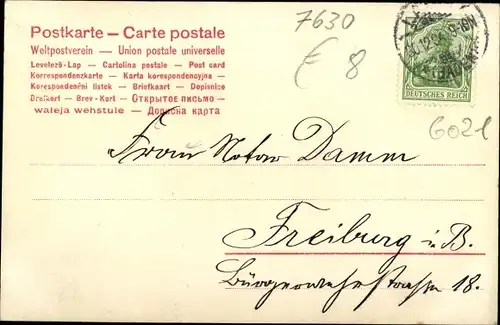 Postkarte — Carte postale
Weltpostverein — Union postale universelle
Levelező-Lap — Cartolina postale — Post card
Korrespondenzkarte — Karta korespondencyjna —
Korespondenční lístek — Briefkaart — Dopisnice
Brefkort — Brev-Kort — Открытое письмо —
waleja wehstule — Дописна карта
7630
€ 8
DEUTSCHES REICH
6021
Frau Notar Damm
Freiburg i. B.
Bürgerwehrstraße 18.